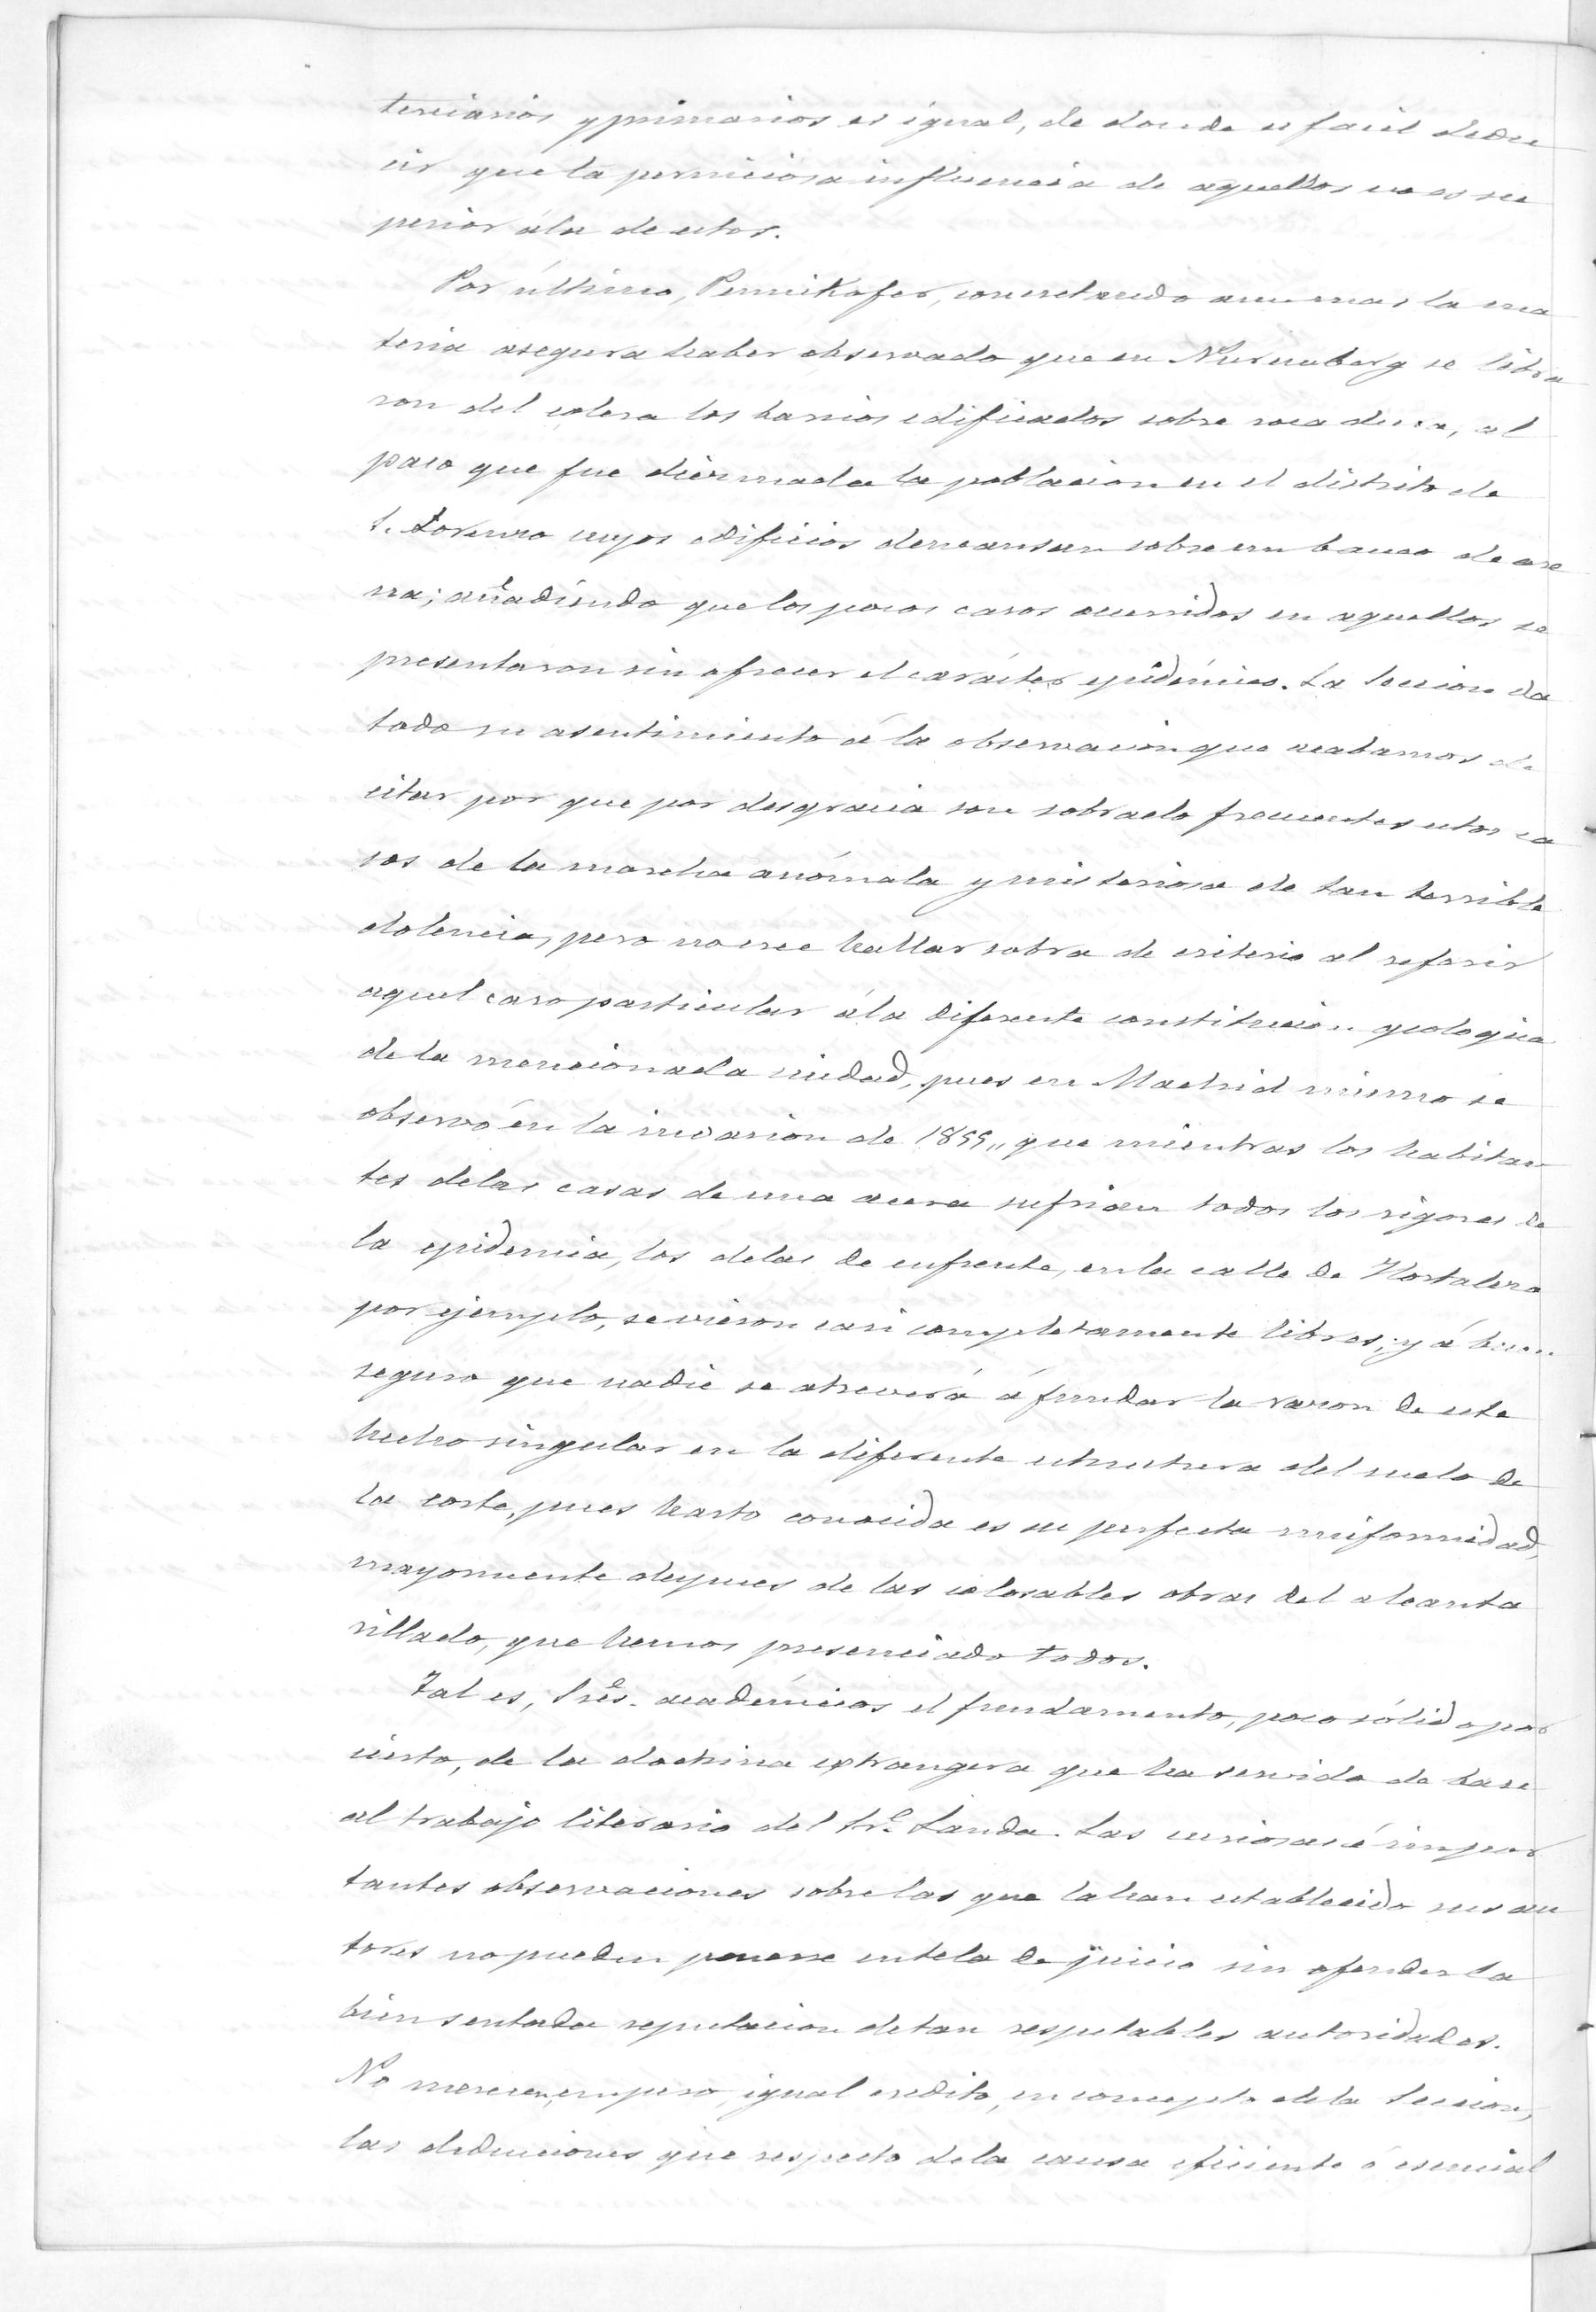 terciarios y primarios es igual, de donde es facil dedu
cir que la perniciosa influencia de aquellos no es su
perior á la de estos.
Por último, Pennikofer, concretando aun mas la ma
teria asegura haber observado que en Nuremberg se libra
ron del colera los barrios edificados sobre roca dura, al
paso que fue diezmada la poblacion en el distrito de
S. Lorenzo cuyos edificios descansan sobre un banco de are
na; añadiendo que los pocos casos ocurridos en aquellos se
presentaron sin ofrecer el carácter epidémico. La Seccion da
todo su asentimiento á la observacion que acabamos de
citar por que por desgracia son sobrado frecuentes estos ca
sos de la marcha anómala y misteriosa de tan terrible
dolencia, pero no cree hallar sobra de criterio al referir
aquel caso particular á la diferente constitucion geologica
de la mencionada ciudad, pues en Madrid mismo se
observó en la invasion de 1855,, que mientras los habitan
tes de las casas de una acera sufrian todos los rigores de
la epidemia, los de las de enfrente, en la calle de Hortaleza
por ejemplo, se vieron casi completamente libres; y á buen
seguro que nadie se atreverá á fundar la razon de este
hecho singular en la diferente estructura del suelo de
la corte, pues harto conocida es su perfecta uniformidad,
mayormente despues de las colosables obras del alcanta
rillado, que hemos presenciado todos.
Tal es, Sres. académicos el fundamento, poco sólido por
cierto, de la doctrina extrangera que ha servido de base
al trabajo literario del Sr. Landa. Las curiosas é impor
tantes observaciones sobre las que la han establecido sus au
tores no pueden ponerse en tela de juicio sin ofender la
bien sentada reputacion de tan respetables autoridades.
No merecen, empero, igual credito, en concepto de la Seccion,
las deducciones que respecto de la causa eficiente ó esencial